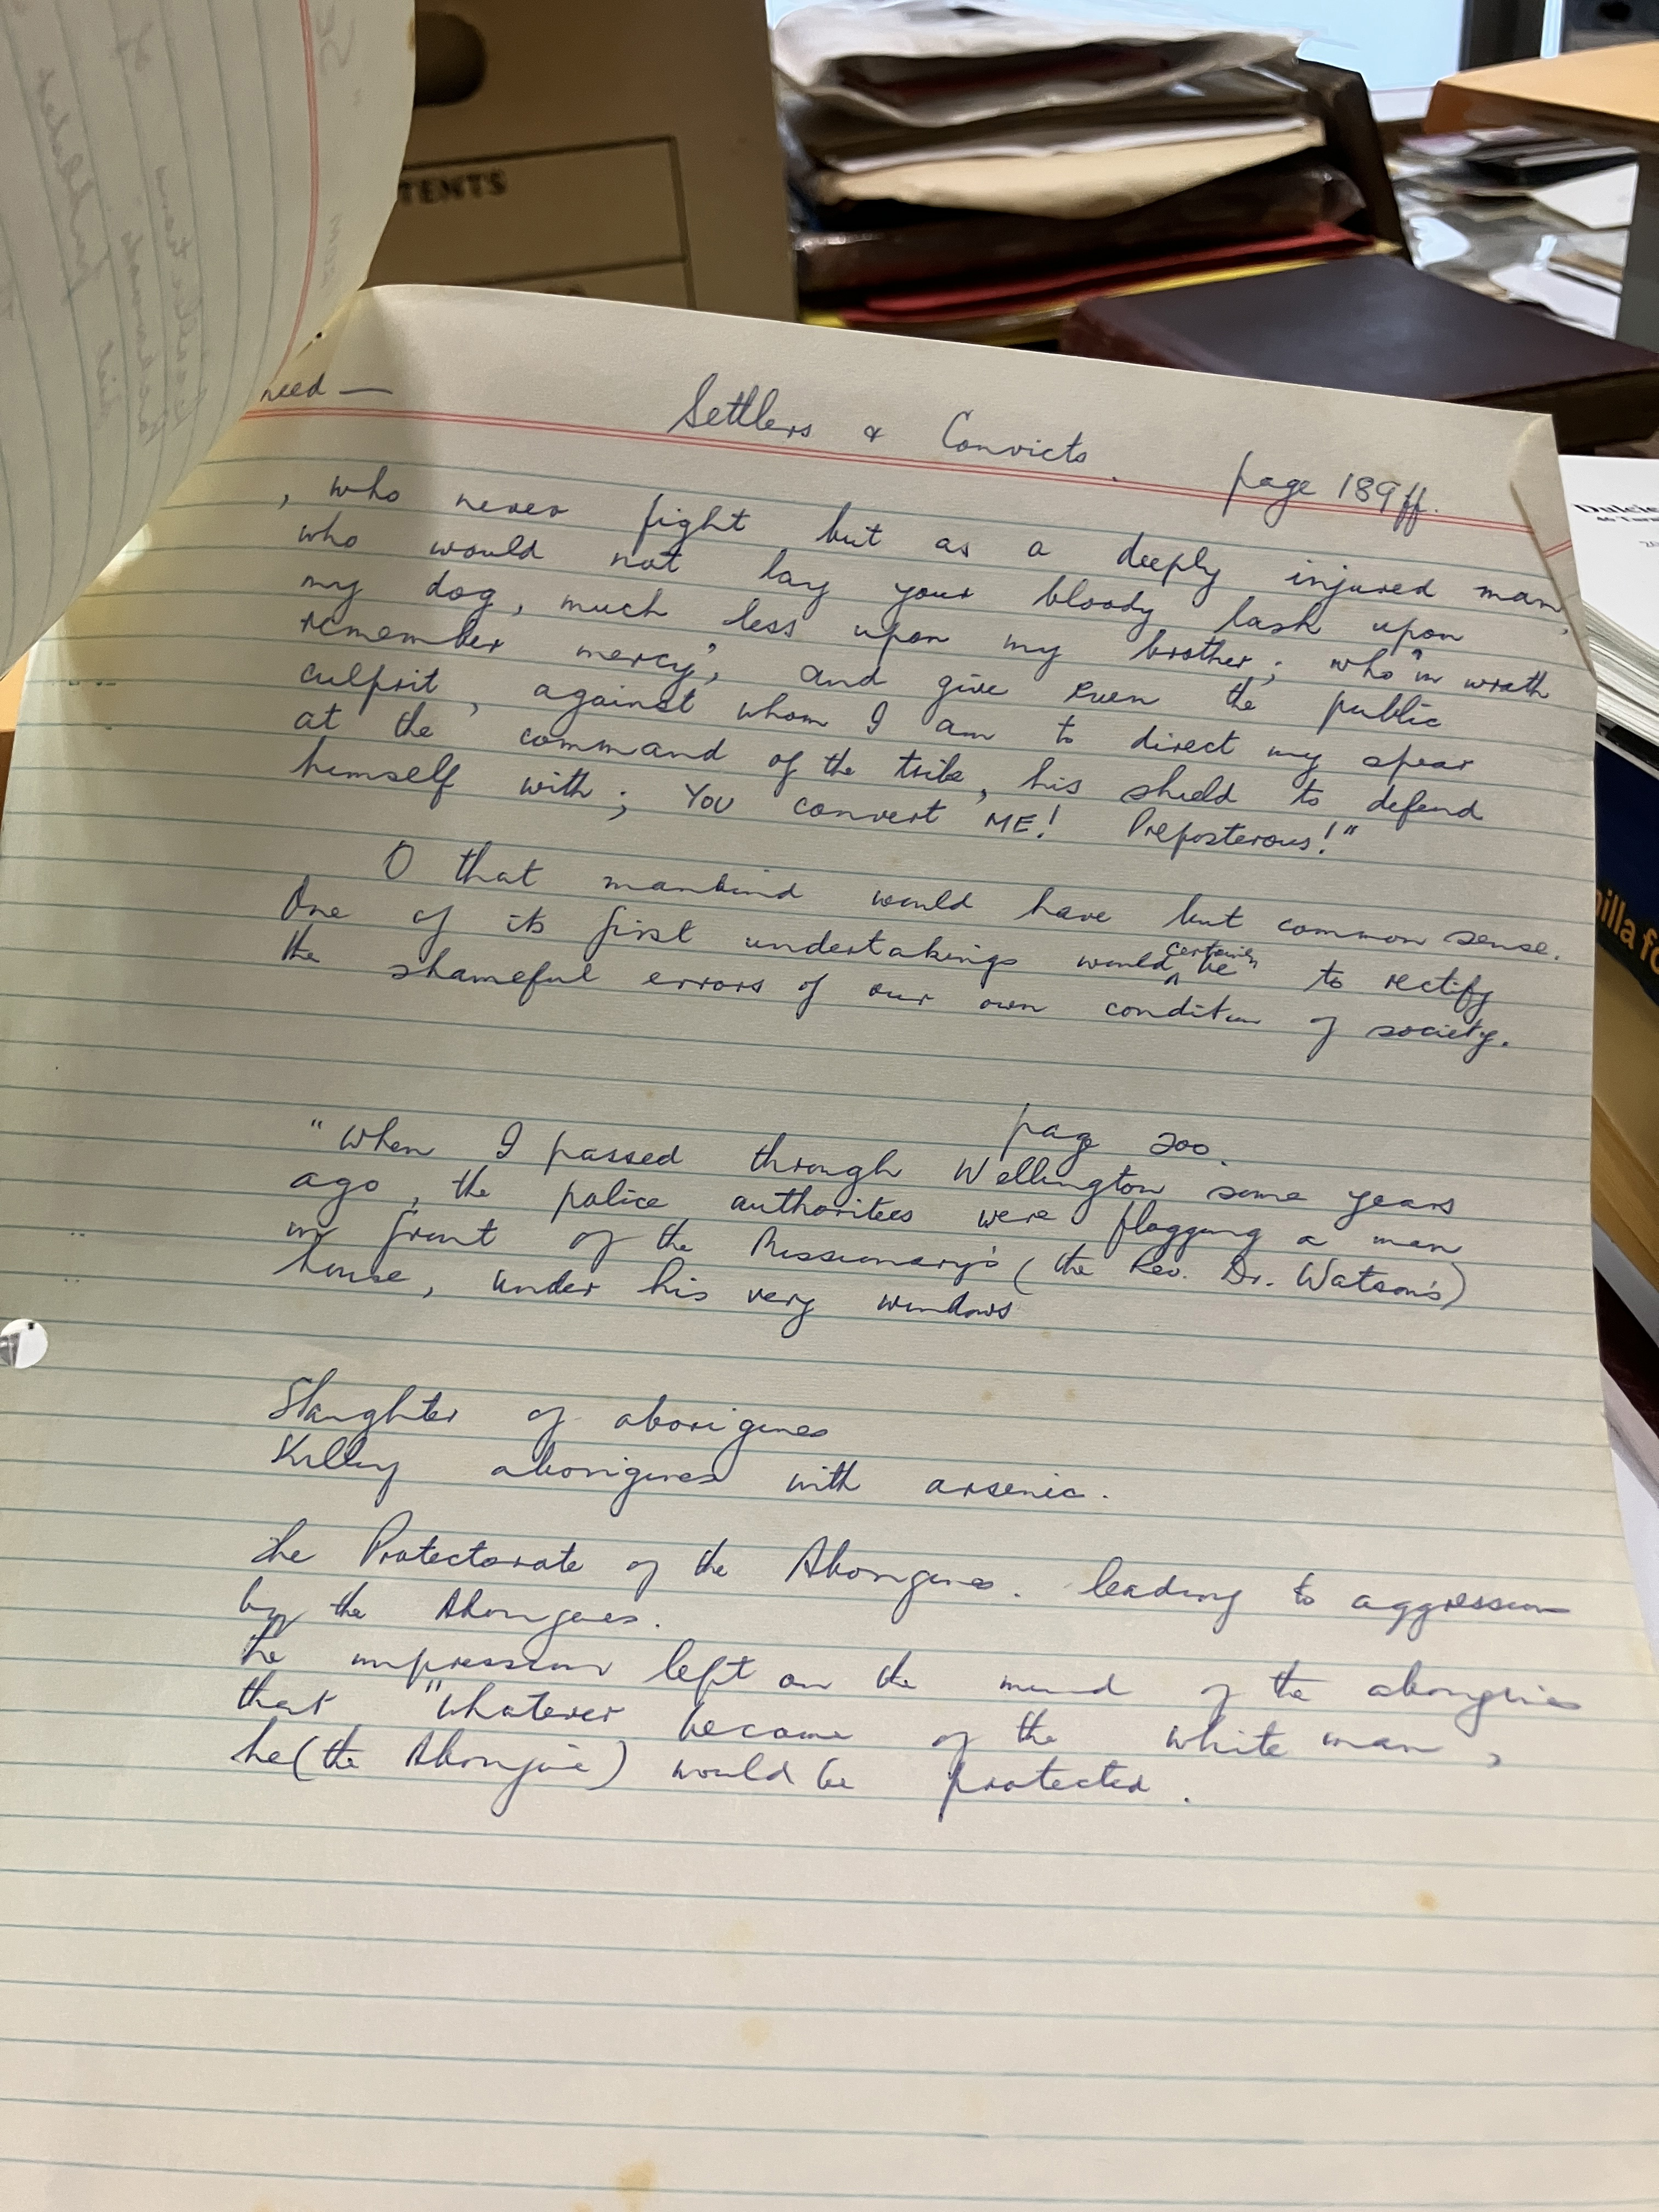 TENTS
need —
Settlers & Convicts. page 189ff.
, who never fight but as a deeply injured man,
who would not lay your bloody lash upon
my dog, much less upon my brother; who "in wrath
remember mercy", and give even the public
culprit, against whom I am to direct my spear
at the command of the tribe, his shield to defend
himself with; YOU convert ME! Preposterous!"
O that mankind would have but common sense.
One of its first undertakings would certainly be to rectify
the shameful errors of our own condition of society.
page 200.
"When I passed through Wellington some years
ago, the police authorities were flogging a man
in front of the Missionary's (the Rev. Dr. Watson's)
house, under his very windows
Slaughter of aborigines
Killing aborigines with arsenic.
The Protectorate of the Aborigines. leading to aggression
by the Aborigines.
The impression left on the mind of the aborigines
that "whatever became of the white man,
he (the Aborigine) would be protected.
Dulcie
illa fo